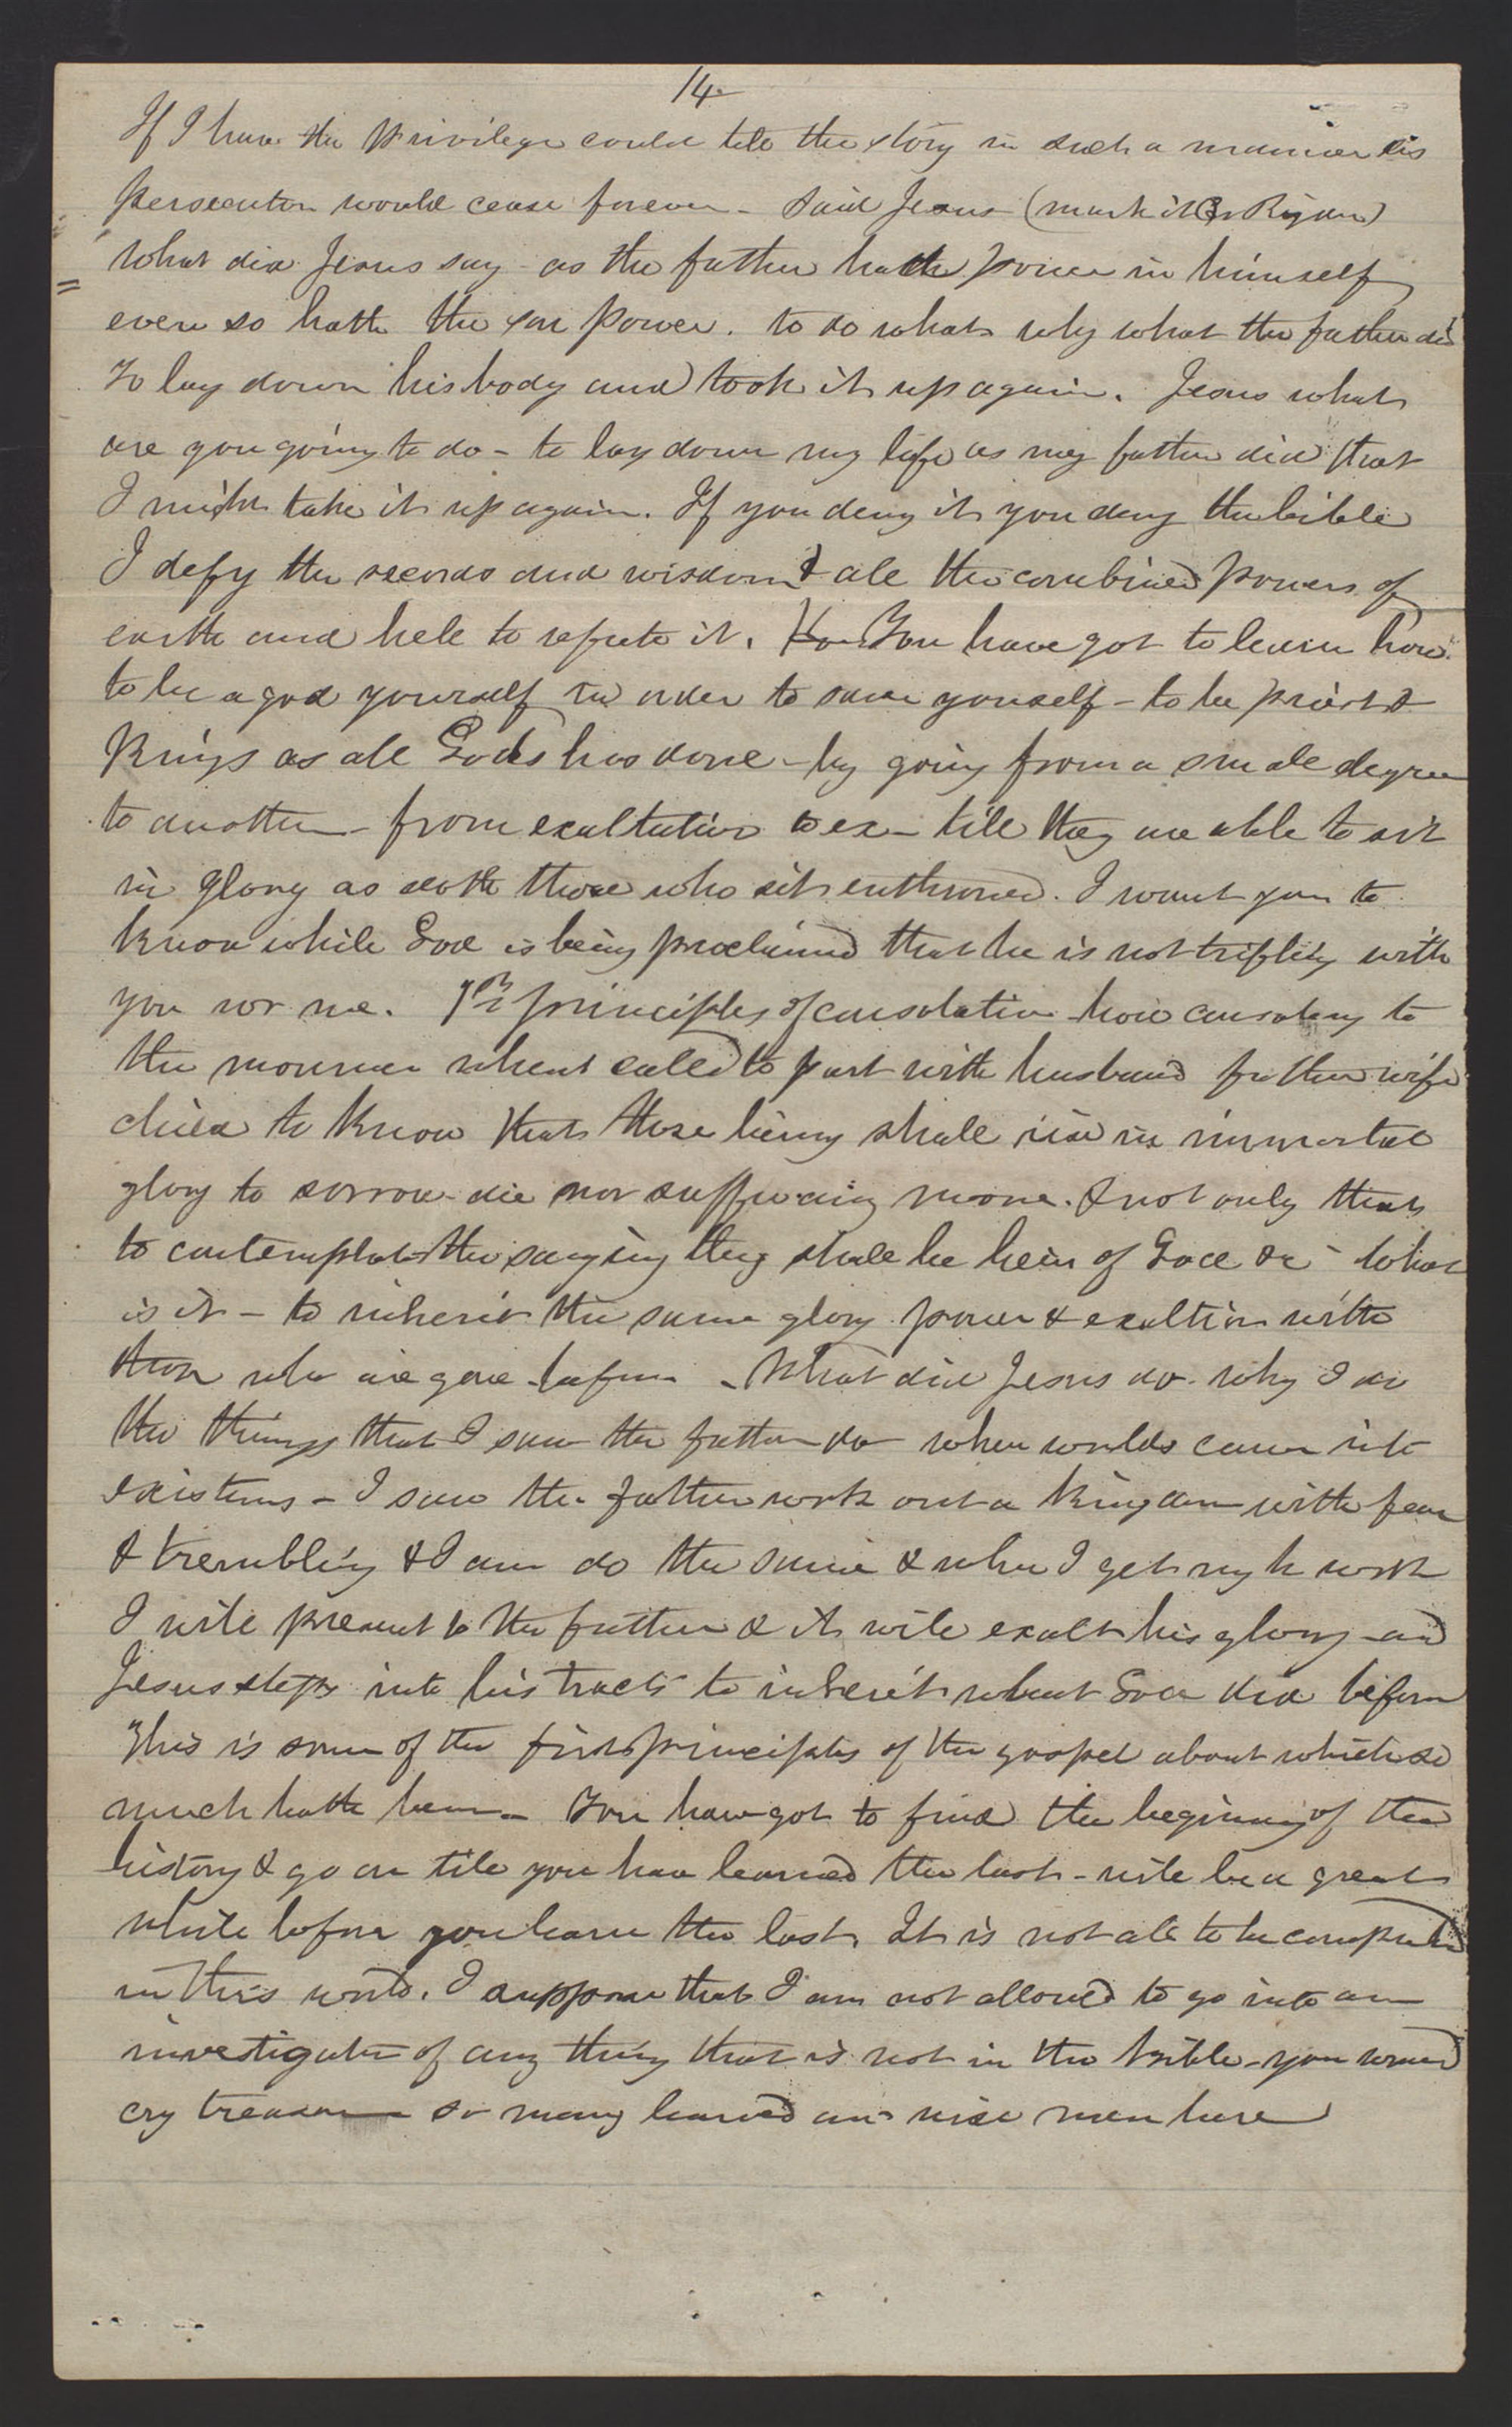 14
If I have the privilege could tell the story in such a manner as
persecution would cease forever - Said Jesus (mark it Br Rigdon)
what did Jesus say - as the father hath power in himself
even so hath the son power. to do what why what the father did
to lay down his body and took it up again. Jesus what
are you going to do - to lay down my life as my father did that
I might take it up again. If you deny it you deny the bible
I defy the records and wisdom & all the combined powers of
earth and hell to refute it. You have got to learn how
to be a god yourself in order to save yourself - to be priests &
Kings as all Gods has done - by going from a small degree
to another - from exaltation to ex - till they are able to sit
in glory as doth those who sit enthroned. I want you to
know while God is being proclaimed that he is not trifling with
you nor me. 1st principles of consolation - how consoling to
the mourner when called to part with husband father wife
child to know that those being shall rise in immortal
glory to sorrow - die nor suffering more. & not only that
to contemplate the saying they shall be heirs of God &c - what
is it - to inherit the same glory power & exaltion with
those who are gone before - What did Jesus do - why I do
the things that I saw the father do when worlds came into
existens - I saw the father work out a kingdom with fear
& trembling & I am do the same & when I get my k work
I will present to the father & it will exalt his glory and
Jesus steps into his tracts to inherit what God did before
This is some of the first principles of the gospel about which so
much hath been - You have got to find the beginning of the
history & go on till you have learned the last - will be a great
while before you learn the last. It is not all to be comprehended
in this world. I suppose that I am not allowed to go into an
investigation of any thing that is not in the bible - you would
cry treason so many learned and wise men here